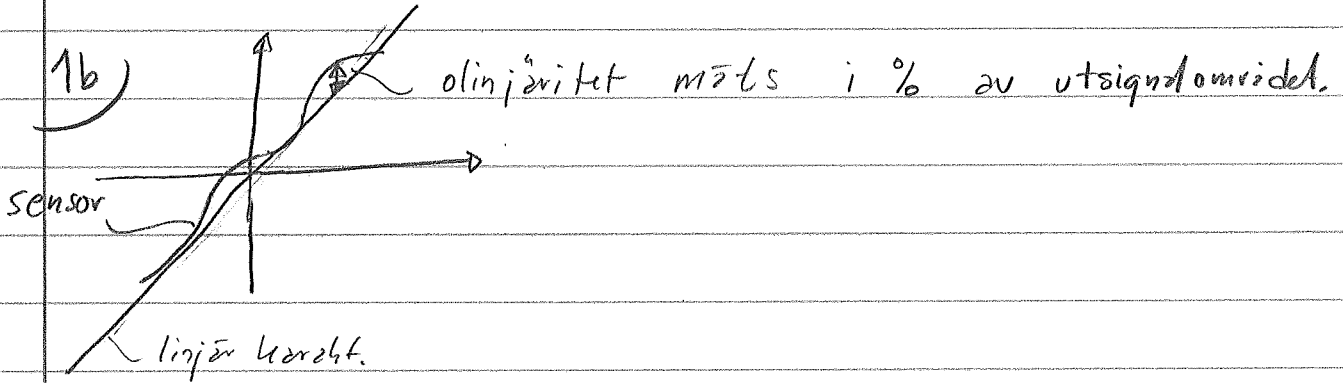 1b)
olinjäritet mäts i % av utsignalområdet.
sensor
linjär karakt.